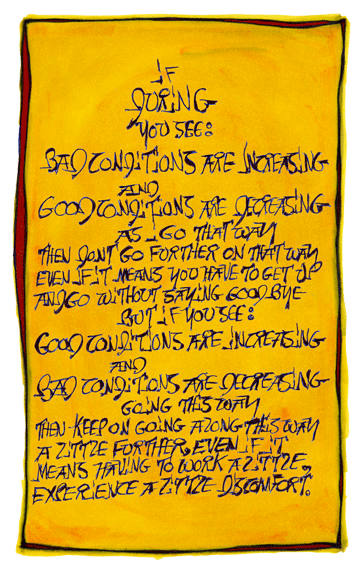 IF
DURING
YOU SEE:
BAD CONDITIONS ARE INCREASING
AND
GOOD CONDITIONS ARE DECREASING
AS I GO THAT WAY
THEN DONT GO FURTHER ON THAT WAY
EVEN IF IT MEANS YOU HAVE TO GET UP
AND GO WITHOUT SAYING GOOD BYE
BUT IF YOU SEE:
GOOD CONDITIONS ARE INCREASING
AND
BAD CONDITIONS ARE DECREASING
GOING THIS WAY
THEN KEEP ON GOING ALONG THIS WAY
A LITTLE FURTHER, EVEN IF IT
MEANS HAVING TO WORK A LITTLE,
EXPERIENCE A LITTLE DISCOMFORT.